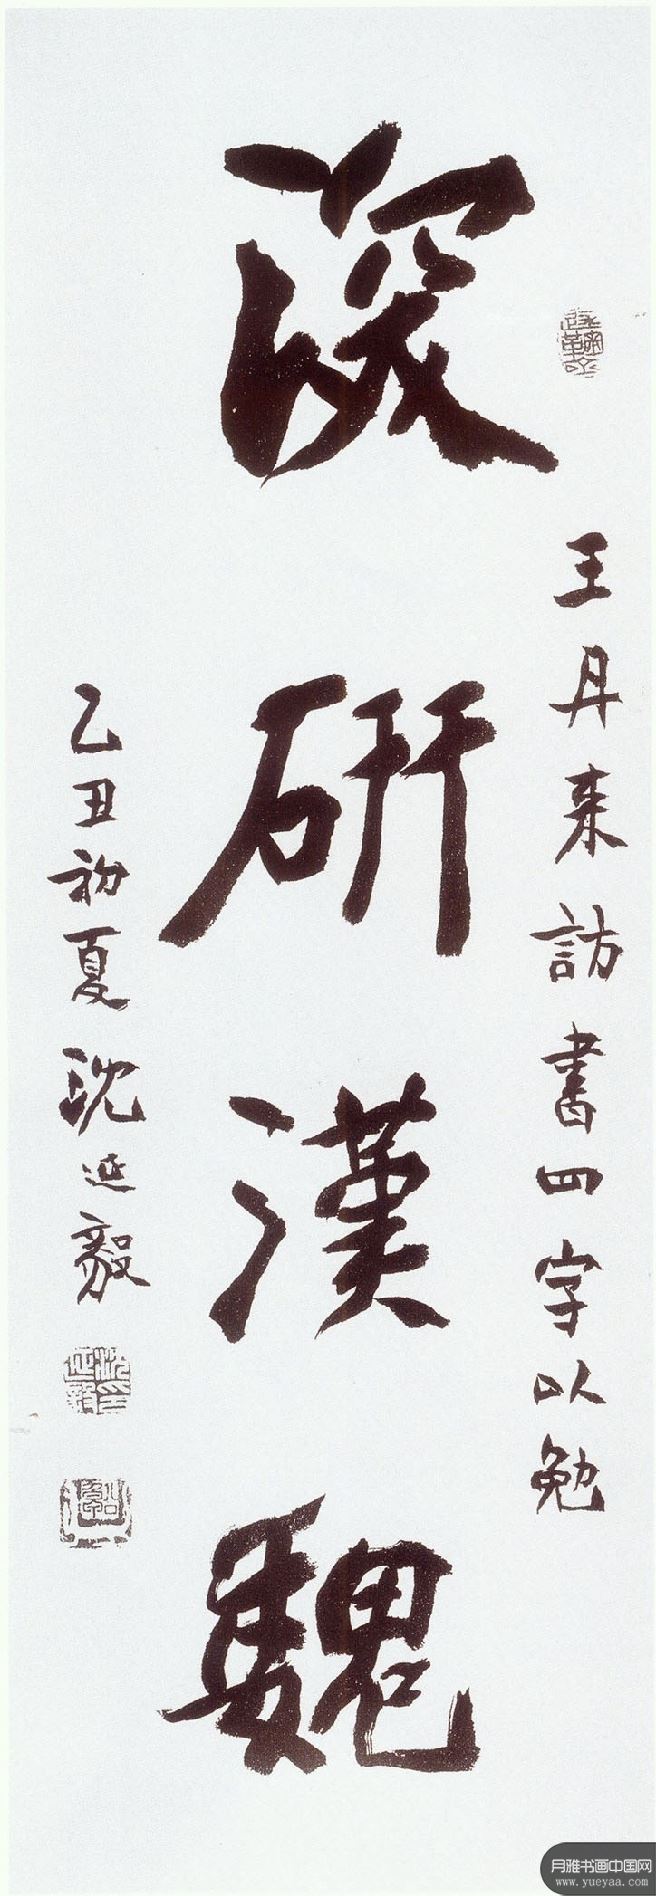 王丹来訪書四字以勉
深研漢魏
乙丑初夏沈延毅
沈延毅印
月雅书画中国网
www.yueyaa.com